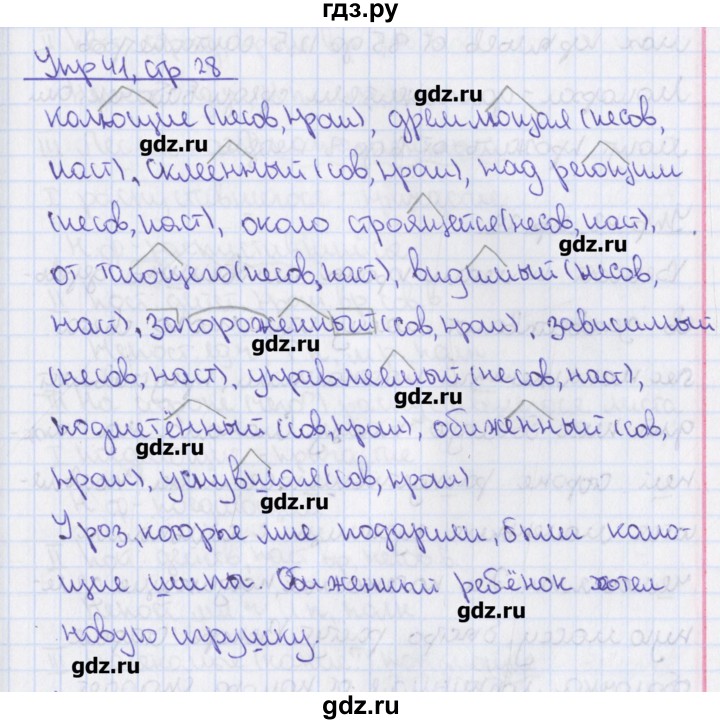 гдз.ру
Упр 41, стр 28
колющие (несов, прош), дремлющая (несов,
наст), склеенный (сов, прош), над реющим
(несов, наст), около строящегося (несов, наст),
от тающего (несов, наст), видимый (несов,
наст), загороженный (сов, прош), зависимый
(несов, наст), управляемый (несов, наст),
подметённый (сов, прош), обиженный (сов,
прош), уснувшая (сов, прош)
У роз, которые мне подарили, были колю
щие шипы. Обиженный ребёнок хотел
новую игрушку.
gdz.ru
gdz.ru
gdz.ru
gdz.ru
gdz.ru
gdz.ru
gdz.ru
gdz.ru
gdz.ru
gdz.ru
gdz.ru